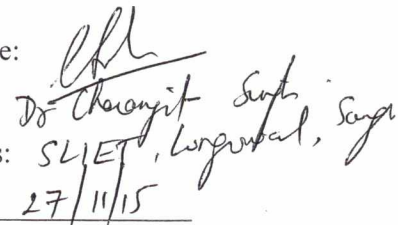 e:
Dr Charanjit Singh
s: SLIET, Longowal,
27/11/15